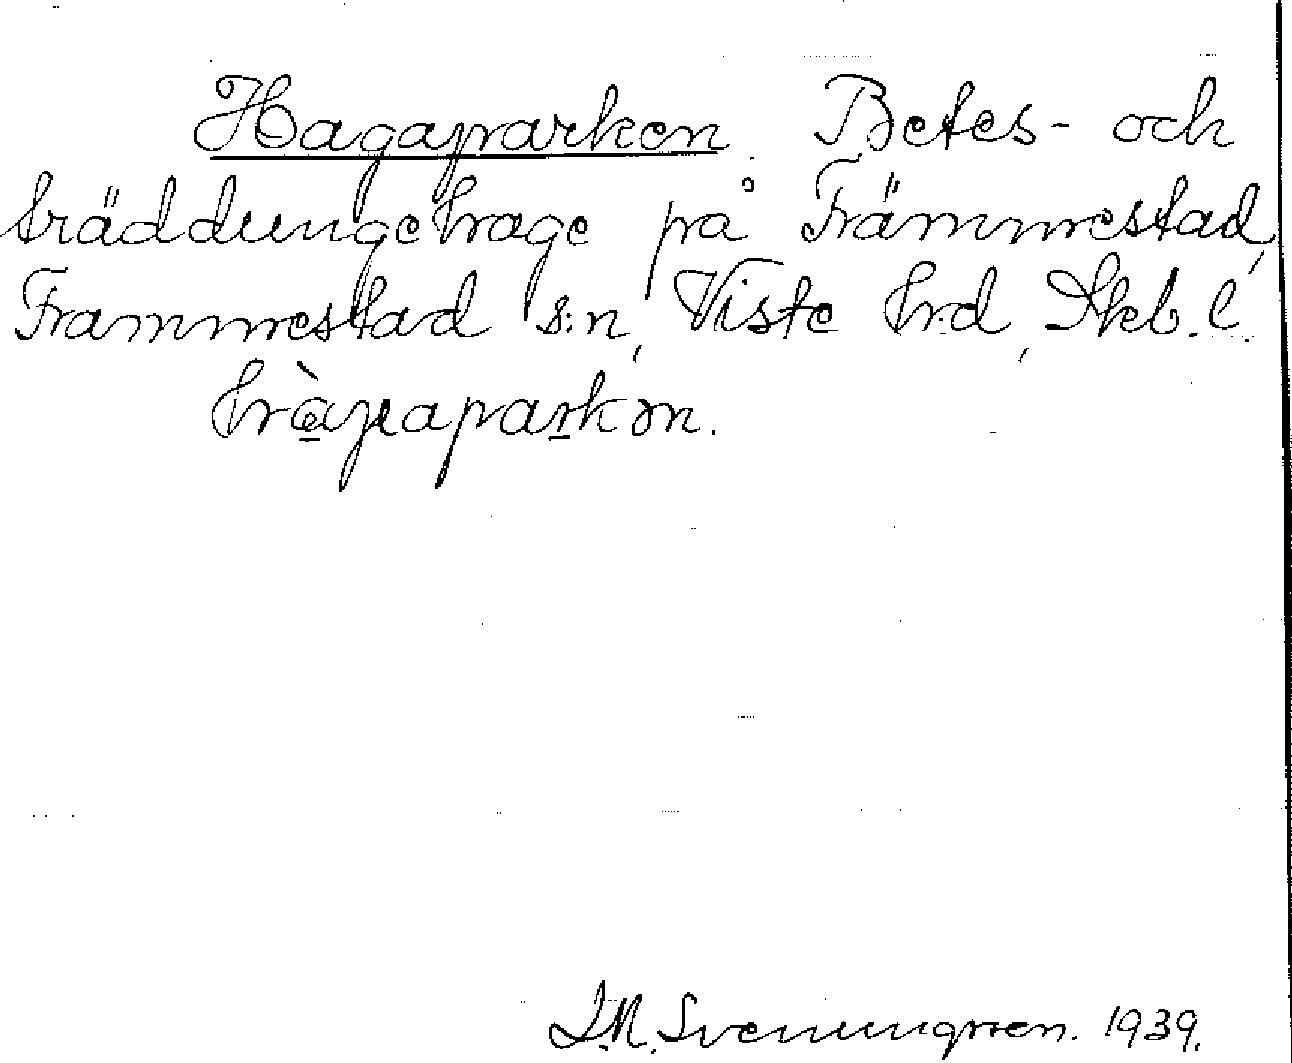 Hagaparken. Betes- och
träddungehage på Främmestad,
Främmestad s:n, Viste hrd, Skb. l.
hàgaparkən.
J.M. Svenungsson. 1939.